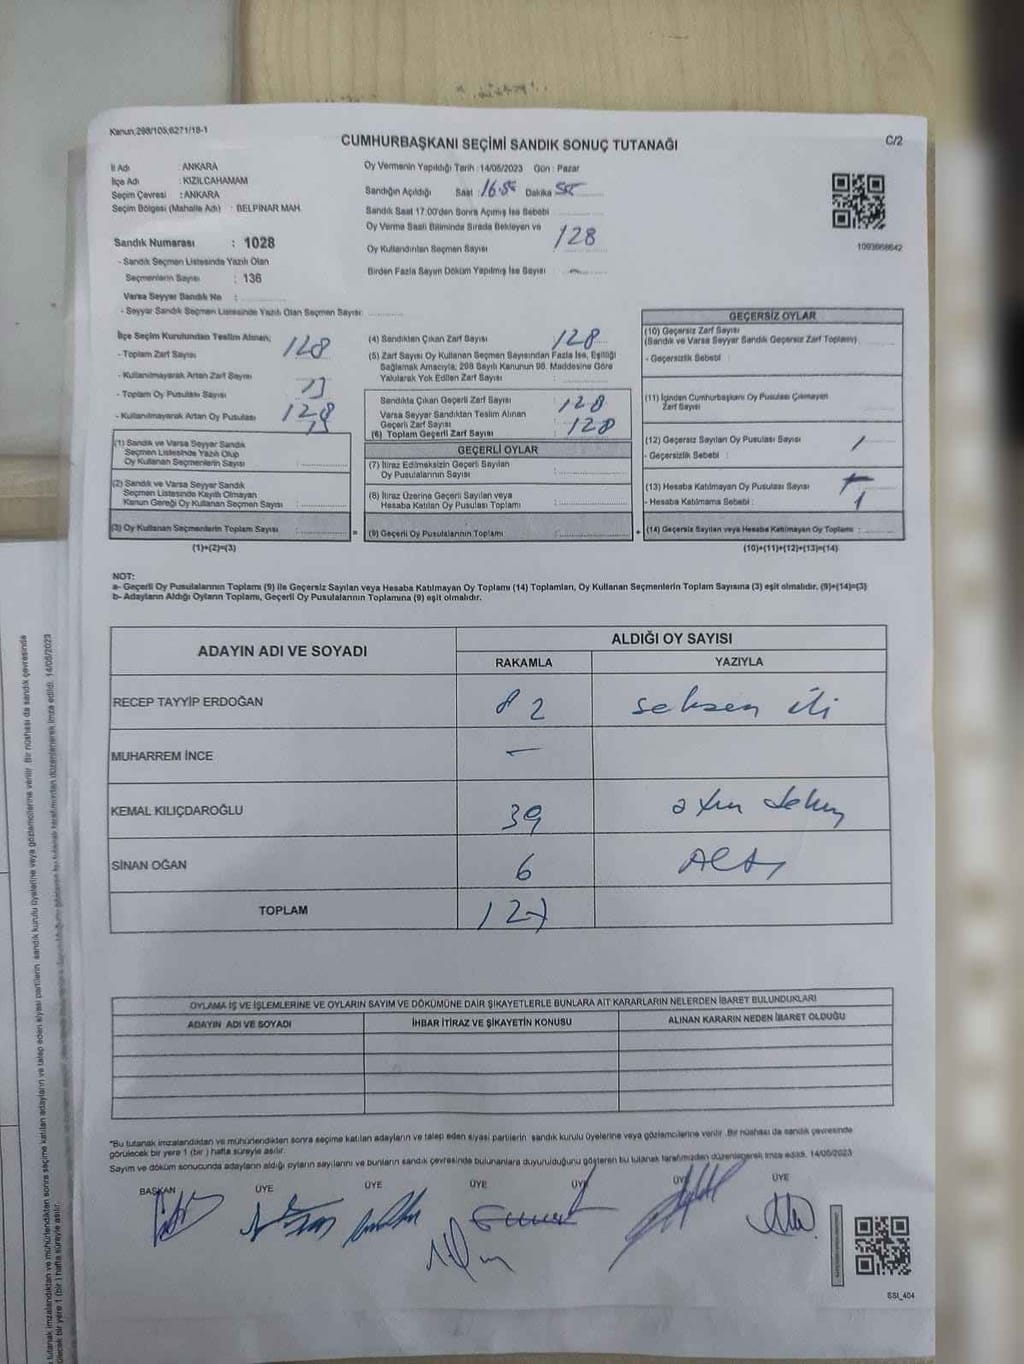 Kanun,298/105;6271/18-1
CUMHURBAŞKANI SEÇİMİ SANDIK SONUÇ TUTANAĞI
C/2
İl Adı : ANKARA
İlçe Adı : KIZILCAHAMAM
Seçim Çevresi : ANKARA
Seçim Bölgesi (Mahalle Adı) : BELPINAR MAH.
Sandık Numarası : 1028
- Sandık Seçmen Listesinde Yazılı Olan
Seçmenlerin Sayısı : 136
Varsa Seyyar Sandık No :
- Seyyar Sandık Seçmen Listesinde Yazılı Olan Seçmen Sayısı
Oy Vermenin Yapıldığı Tarih : 14/05/2023 Gün : Pazar
Sandığın Açıldığı Saat : 16.55 Dakika
Sandık Saat 17:00'den Sonra Açılmış İse Sebebi
Oy Verme Saati Bitiminde Sırada Bekleyen ve
Oy Kullandırılan Seçmen Sayısı 128
Birden Fazla Sayım Döküm Yapılmış İse Sayısı -
1093668642
İlçe Seçim Kurulundan Teslim Alınan;
- Toplam Zarf Sayısı 128
- Kullanılmayarak Artan Zarf Sayısı
- Toplam Oy Pusulası Sayısı
- Kullanılmayarak Artan Oy Pusulası 128
(1) Sandık ve Varsa Seyyar Sandık
Seçmen Listesinde Yazılı Olup
Oy Kullanan Seçmenlerin Sayısı :
(2) Sandık ve Varsa Seyyar Sandık
Seçmen Listesinde Kayıtlı Olmayan
Kanun Gereği Oy Kullanan Seçmen Sayısı :
(3) Oy Kullanan Seçmenlerin Toplam Sayısı :
(1)+(2)=(3)
(4) Sandıktan Çıkan Zarf Sayısı 128
(5) Zarf Sayısı Oy Kullanan Seçmen Sayısından Fazla İse, Eşitliği
Sağlamak Amacıyla; 298 Sayılı Kanunun 98. Maddesine Göre
Yakılarak Yok Edilen Zarf Sayısı :
Sandıkta Çıkan Geçerli Zarf Sayısı : 128
Varsa Seyyar Sandıktan Teslim Alınan
Geçerli Zarf Sayısı :
(6) Toplam Geçerli Zarf Sayısı 128
GEÇERLİ OYLAR
(7) İtiraz Edilmeksizin Geçerli Sayılan
Oy Pusulalarının Sayısı :
(8) İtiraz Üzerine Geçerli Sayılan veya
Hesaba Katılan Oy Pusulası Toplamı :
= (9) Geçerli Oy Pusulalarının Toplamı :
GEÇERSİZ OYLAR
(10) Geçersiz Zarf Sayısı
(Sandık ve Varsa Seyyar Sandık Geçersiz Zarf Toplamı)
- Geçersizlik Sebebi :
(11) İçinden Cumhurbaşkanı Oy Pusulası Çıkmayan
Zarf Sayısı
(12) Geçersiz Sayılan Oy Pusulası Sayısı
- Geçersizlik Sebebi :
(13) Hesaba Katılmayan Oy Pusulası Sayısı
- Hesaba Katılmama Sebebi : 1
+ (14) Geçersiz Sayılan veya Hesaba Katılmayan Oy Toplamı :
(10)+(11)+(12)+(13)=(14)
NOT:
a- Geçerli Oy Pusulalarının Toplamı (9) ile Geçersiz Sayılan veya Hesaba Katılmayan Oy Toplamı (14) Toplamları, Oy Kullanan Seçmenlerin Toplam Sayısına (3) eşit olmalıdır. (9)+(14)=(3)
b- Adayların Aldığı Oyların Toplamı, Geçerli Oy Pusulalarının Toplamına (9) eşit olmalıdır.
ADAYIN ADI VE SOYADI
ALDIĞI OY SAYISI
RAKAMLA YAZIYLA
RECEP TAYYİP ERDOĞAN 82 seksen iki
MUHARREM İNCE -
KEMAL KILIÇDAROĞLU 39
SİNAN OĞAN 6 Altı
TOPLAM 127
OYLAMA İŞ VE İŞLEMLERİNE VE OYLARIN SAYIM VE DÖKÜMÜNE DAİR ŞİKAYETLERLE BUNLARA AİT KARARLARIN NELERDEN İBARET BULUNDUKLARI
ADAYIN ADI VE SOYADI İHBAR İTİRAZ VE ŞİKAYETİN KONUSU ALINAN KARARIN NEDEN İBARET OLDUĞU
"Bu tutanak imzalandıktan ve mühürlendikten sonra seçime katılan adayların ve talep eden siyasi partilerin sandık kurulu üyelerine veya gözlemcilerine verilir. Bir nüshası da sandık çevresinde
görülecek bir yere 1 (bir) hafta süreyle asılır.
Sayım ve döküm sonucunda adayların aldığı oyların sayılarını ve bunların sandık çevresinde bulunanlara duyurulduğunu gösteren bu tutanak tarafımızdan düzenlenerek imza edildi. 14/05/2023
BAŞKAN ÜYE ÜYE ÜYE ÜYE ÜYE ÜYE
SSI_404
sandık kurulu üyelerine veya gözlemcilerine verilir. Bir nüshası da sandık çevresinde
tutanak tarafımızdan düzenlenerek imza edildi. 14/05/2023